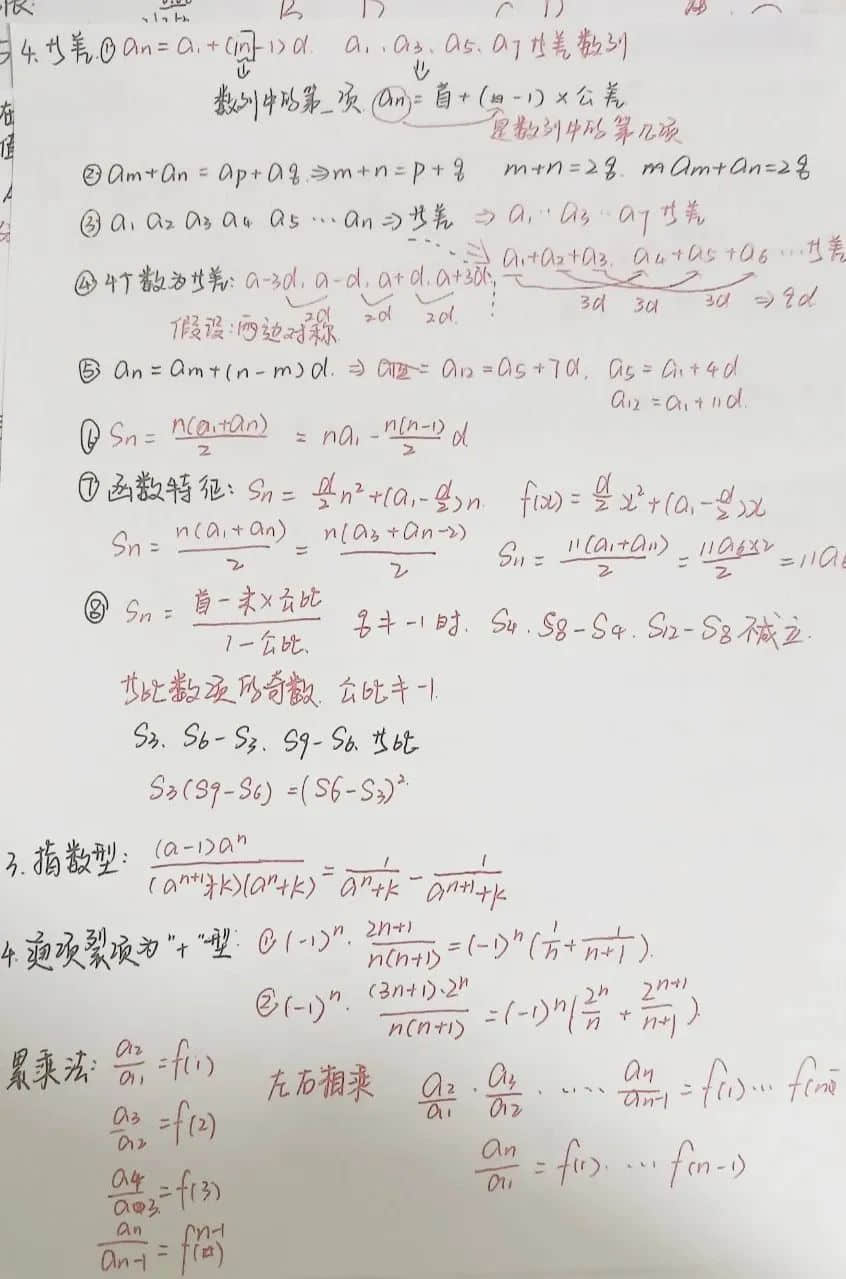 4. 等差 ① an = a₁ + (n-1)d. a₁、a₃、a₅、a₇等差数列
数列中的第_项 an = 首 + (n-1)×公差
是数列中的第几项
② am+an = ap+aq ⇒ m+n = p+q m+n=2q. am+an=2q
③ a₁ a₂ a₃ a₄ a₅ … an ⇒ 等差 ⇒ a₁‥a₃‥a₇等差
⇒ a₁+a₂+a₃, a₄+a₅+a₆ …等差
④ 4个数为等差: a-3d, a-d, a+d, a+3d
3d 3d 3d ⇒ 9d
2d 2d 2d
假设:两边对称
⑤ an = am+(n-m)d. ⇒ a₁₂ = a₅+7d. a₅ = a₁+4d
a₁₂ = a₁+11d.
⑥ Sn = n(a₁+an)/2 = na₁ - n(n-1)/2 d
⑦ 函数特征: Sn = d/2 n² + (a₁ - d/2)n. f(x) = d/2 x² + (a₁ - d/2)x
Sn = n(a₁+an)/2 = n(a₃+an-2)/2 S₁₁ = 11(a₁+a₁₁)/2 = 11a₆×2/2 = 11a₆
⑧ Sn = 首-末×公比/1-公比 q≠-1时. S₄. S₈-S₄. S₁₂-S₈不成立.
等比数项的奇数. 公比≠-1.
S₃、S₆-S₃、S₉-S₆、等比
S₃(S₉-S₆) = (S₆-S₃)²
3. 指数型: (a-1)aⁿ/(aⁿ⁺¹+k)(aⁿ+k) = 1/aⁿ+k - 1/aⁿ⁺¹+k
4. 项裂项为"+"型: ① (-1)ⁿ · 2n+1/n(n+1) = (-1)ⁿ(1/n + 1/n+1).
② (-1)ⁿ · (3n+1)·2ⁿ/n(n+1) = (-1)ⁿ(2ⁿ/n + 2ⁿ⁺¹/n+1).
累乘法: a₂/a₁ = f(1) 左右相乘 a₂/a₁ · a₃/a₂ · ‥‥ an/an-1 = f(1)…
a₃/a₂ = f(2)
an/a₁ = f(1)·…f(n-1)
a₄/a₃ = f(3)
an/an-1 = f(n-1)